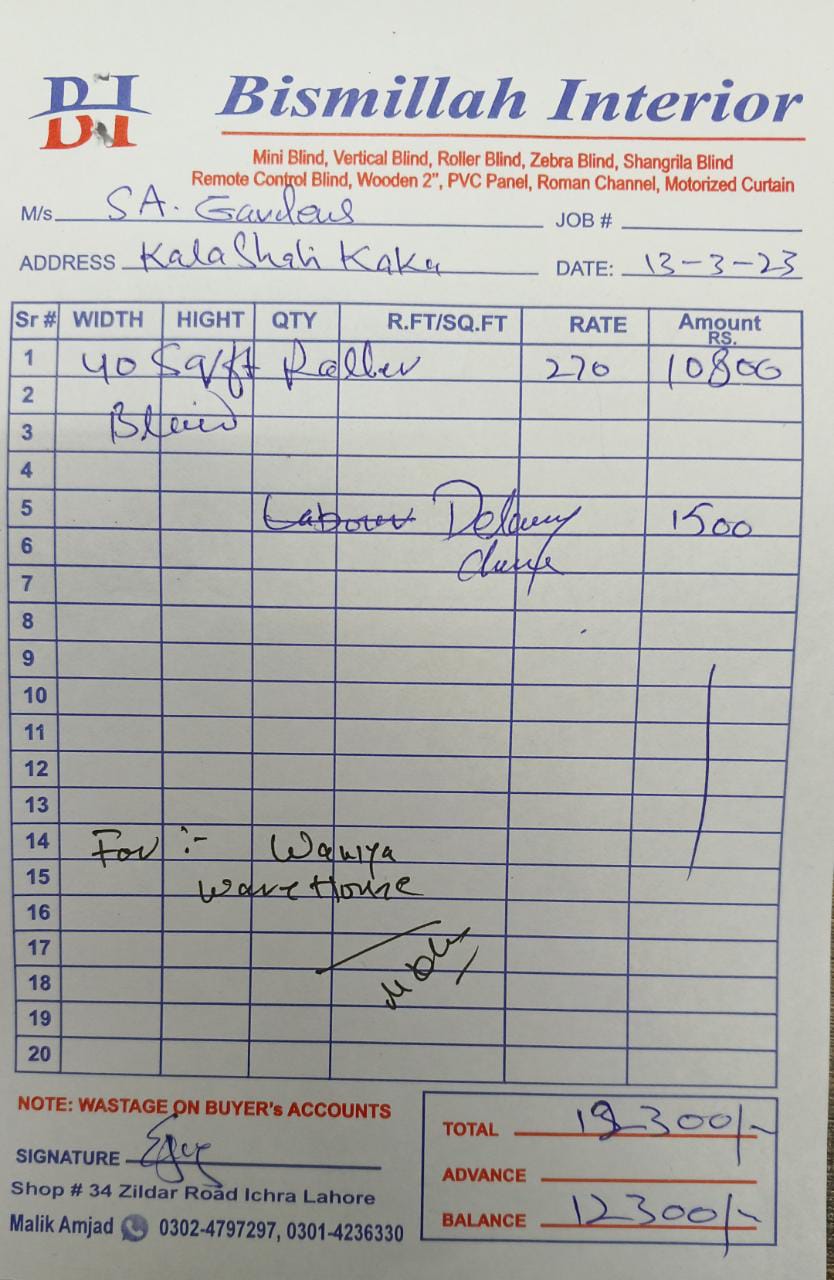 BI
Bismillah Interior
Mini Blind, Vertical Blind, Roller Blind, Zebra Blind, Shangrila Blind
Remote Control Blind, Wooden 2", PVC Panel, Roman Channel, Motorized Curtain
M/s. SA. Gardens JOB #
ADDRESS Kala Shah Kaku DATE: 13-3-23
Sr # WIDTH HIGHT QTY R.FT/SQ.FT RATE Amount RS.
1 40 Sq/ft Roller 270 10800
2
3 Blind
4
5 Labour Delivery 1500
6 charge
7
8
9
10
11
12
13
14 For :- Waniya
15 Ware House
16
17
18
19
20
NOTE: WASTAGE ON BUYER's ACCOUNTS
TOTAL 12300/-
SIGNATURE
ADVANCE
Shop # 34 Zildar Road Ichra Lahore
BALANCE 12300/-
Malik Amjad 0302-4797297, 0301-4236330